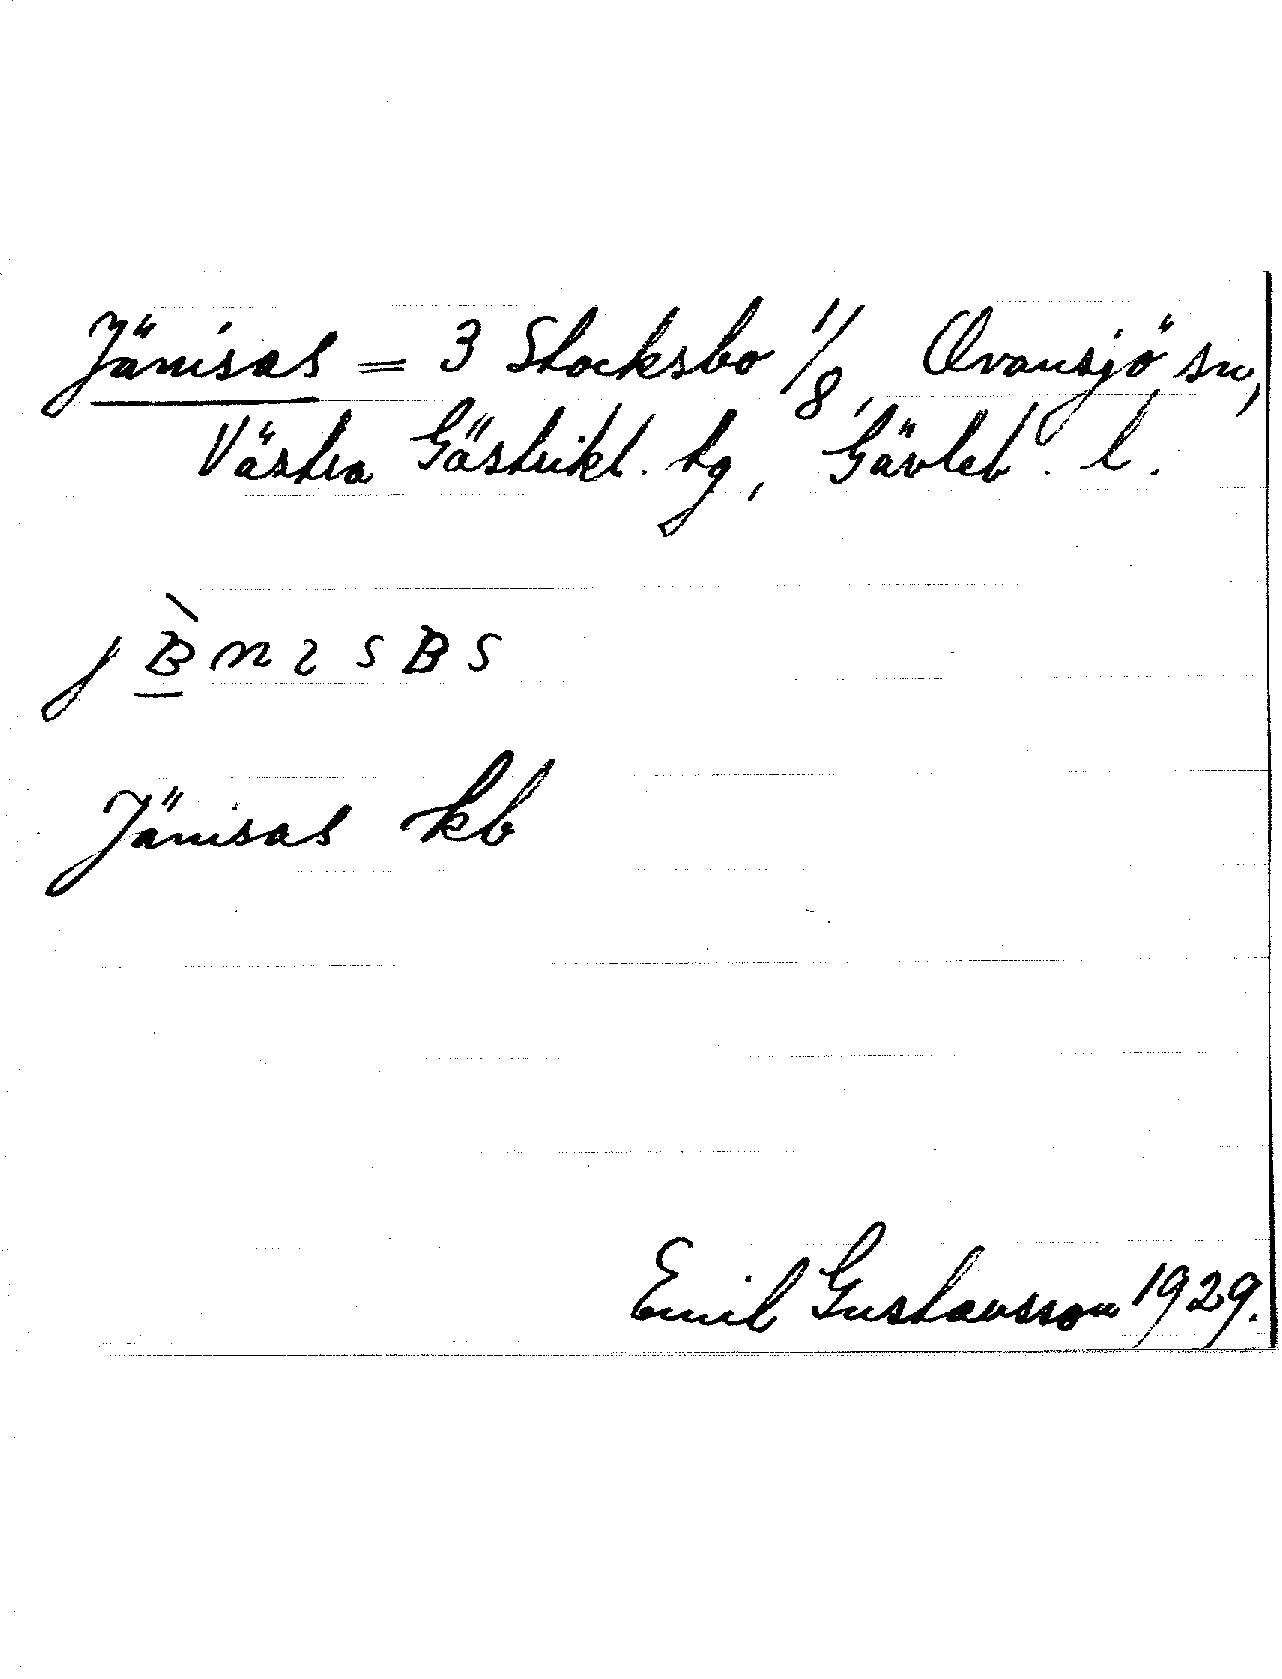 Jänisas = 3 Stocksbo 1/8, Ovansjö sn,
Västra Gästrikl. tg, Gävleb. l.
Jänisas kb
Emil Gustavsson 1929.